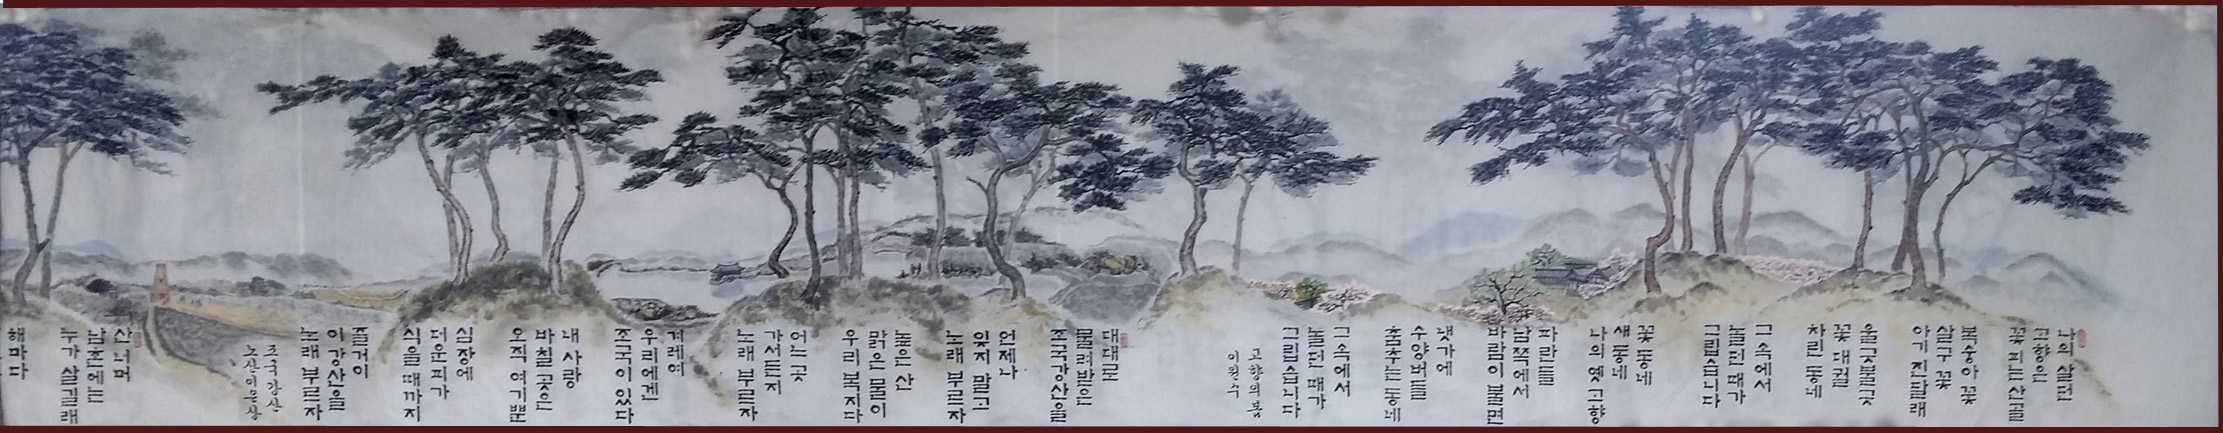 나의 살던
고향은
꽃 피는 산골
복숭아 꽃
살구 꽃
아기 진달래
울긋불긋
꽃 대궐
차린 동네
그 속에서
놀던 때가
그립습니다
꽃 동네
새 동네
나의 옛 고향
파란들
남쪽에서
바람이 불면
냇가에
수양버들
춤추는 동네
그 속에서
놀던 때가
그립습니다
고향의 봄
이원수
대대로
물려받은
조국강산을
언제나
잊지 말고
노래 부르자
높은 산
맑은 물이
우리 복지다
어느 곳
가서든지
노래 부르자
겨레여
우리에겐
조국이 있다
내 사랑
바칠 곳은
오직 여기뿐
심장에
더운 피가
식을 때까지
즐거이
이 강산을
노래 부르자
조국강산
노산 이은상
산 너머
남촌에는
누가 살길래
해마다